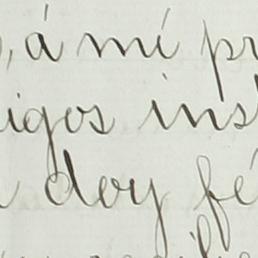 , á mí pr
igos ins
doy fé